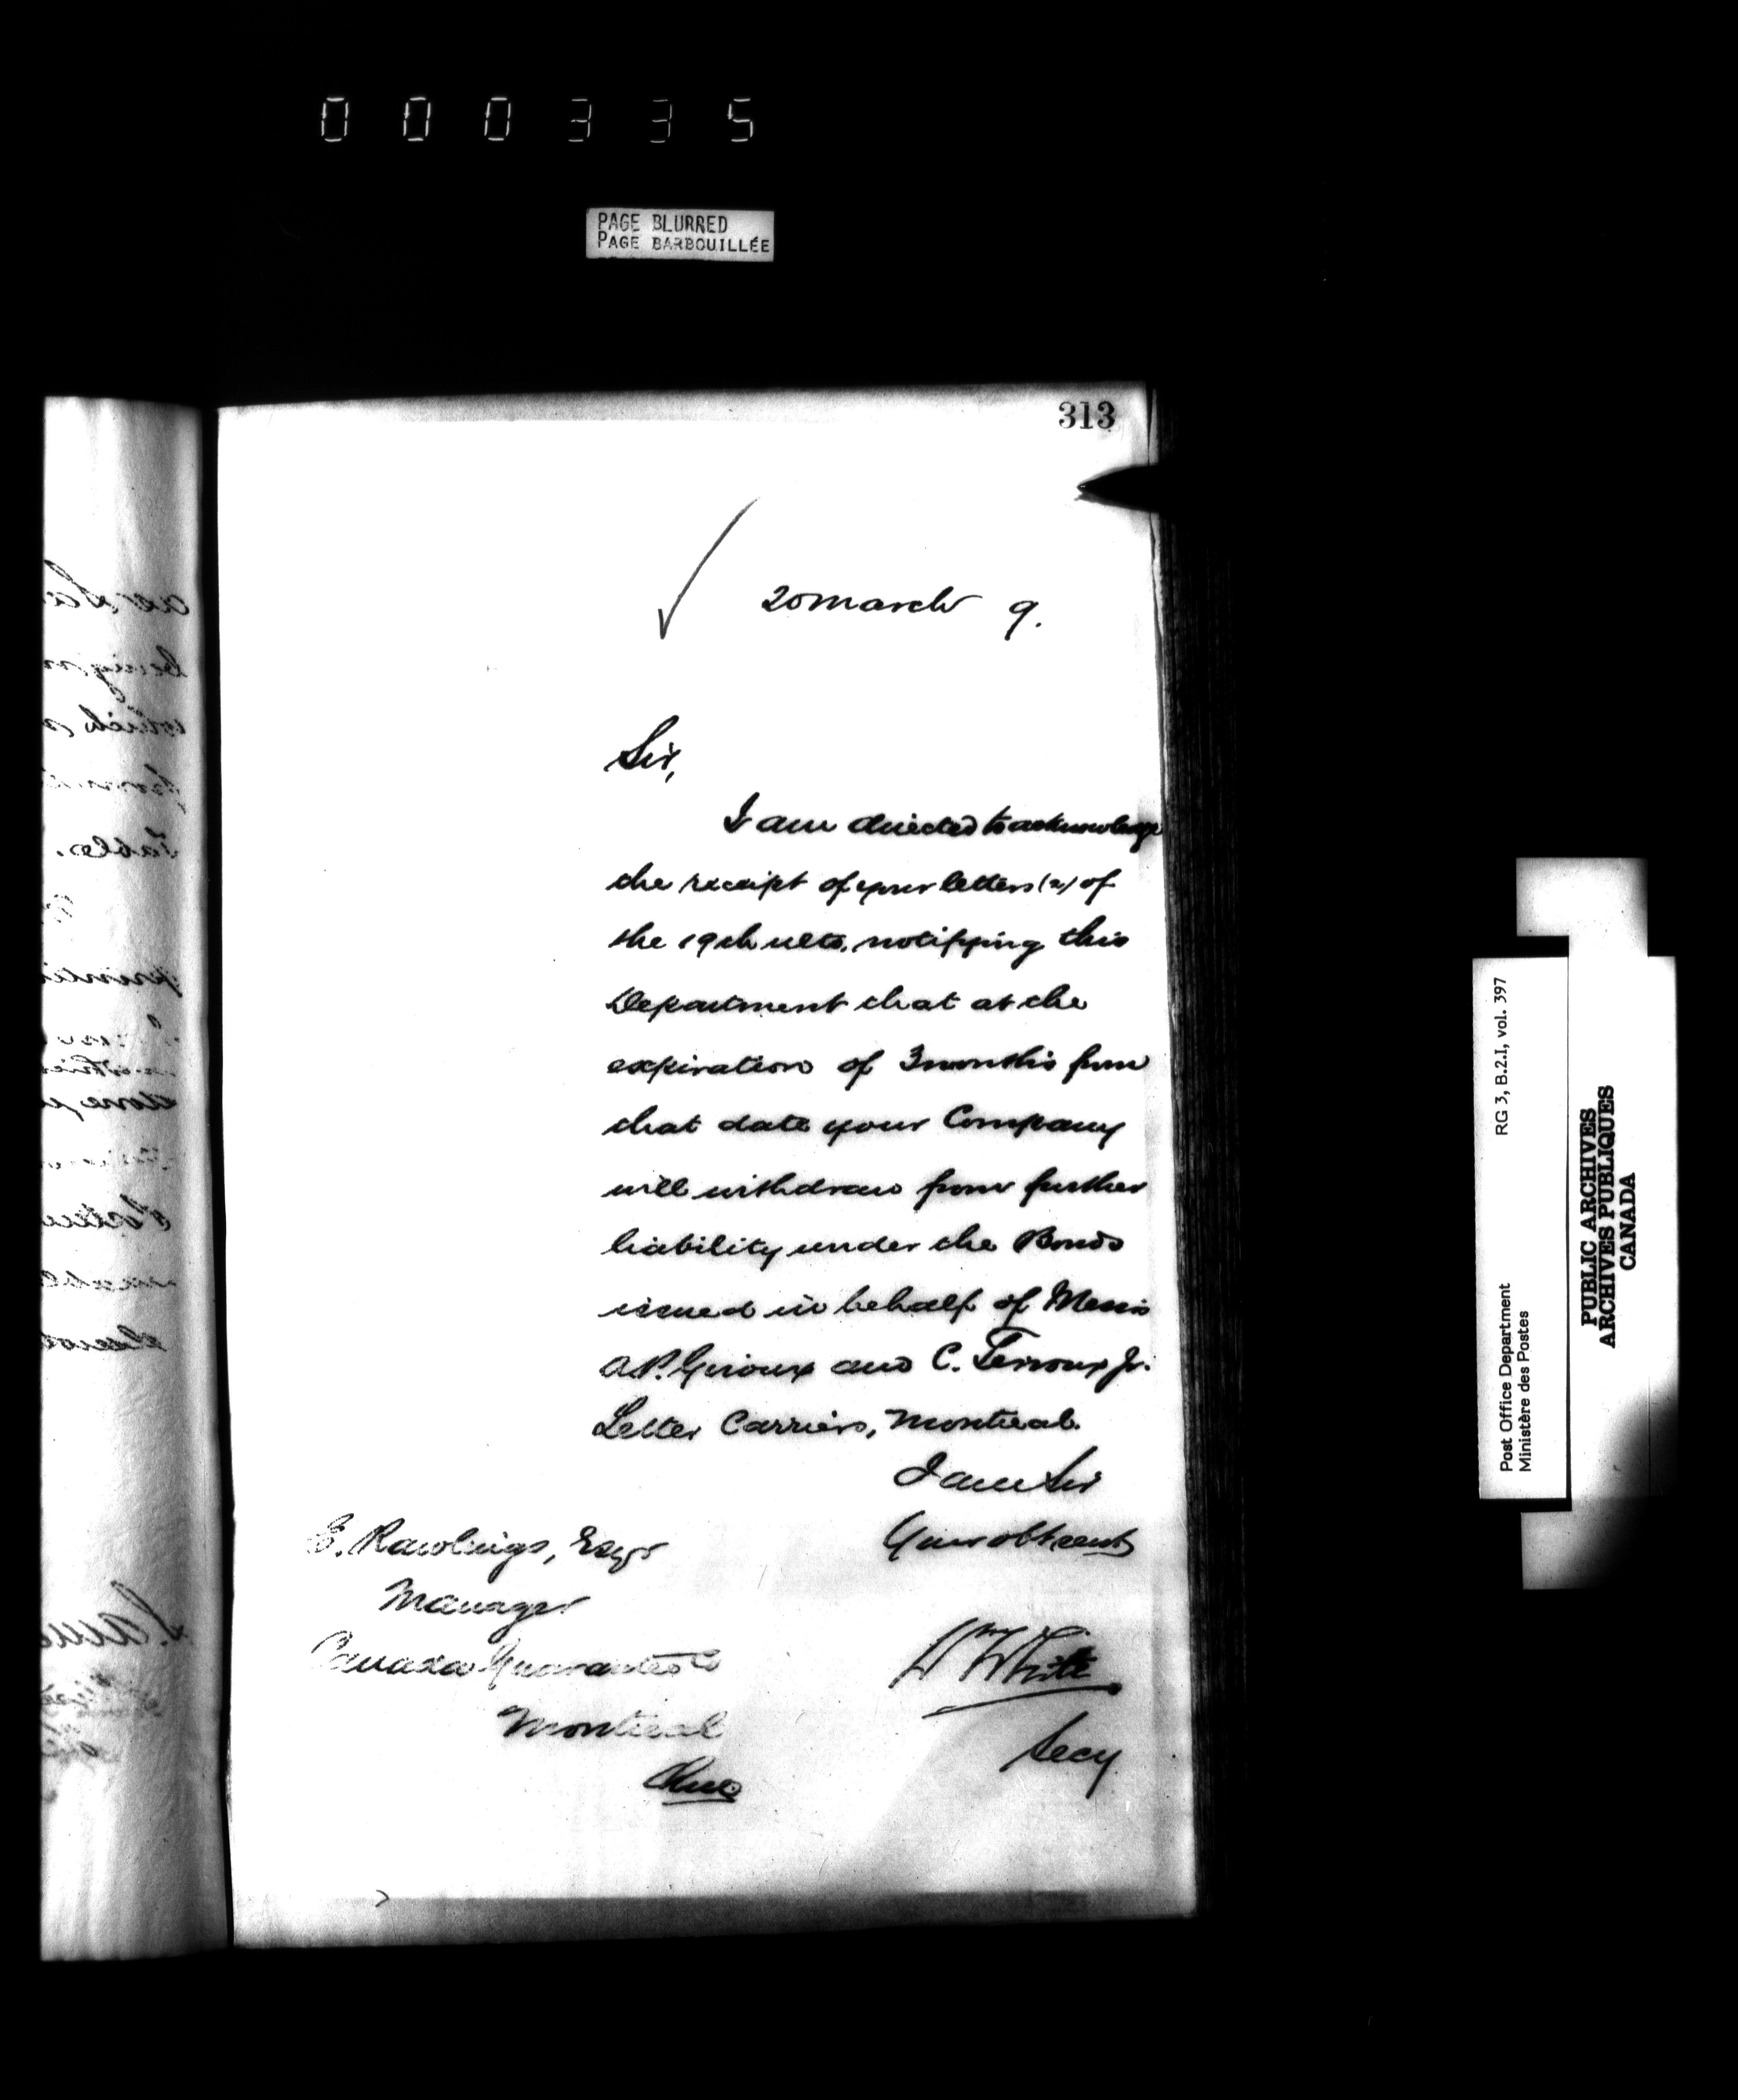 000335
PAGE BLURRED
PAGE BARBOUILLÉE
313
20 March 9.
Sir,
I am directed to acknowledge
the receipt of your letters (2) of
the 19th ulto. notifying this
Department that at the
expiration of 3 months from
that date your Company
will withdraw from further
liability under the Bonds
issued in behalf of Messrs
A.P. Giroux and C. Terroux Jr.
Letter Carriers, Montreal.
I am Sir
Your obt servt
E. Rawlings, Esqr
Manager
Canada Guarantee Co
Montreal
Que
Wm White
Secy
RG 3, B.2.I, vol. 397
Post Office Department
Ministère des Postes
PUBLIC ARCHIVES
ARCHIVES PUBLIQUES
CANADA